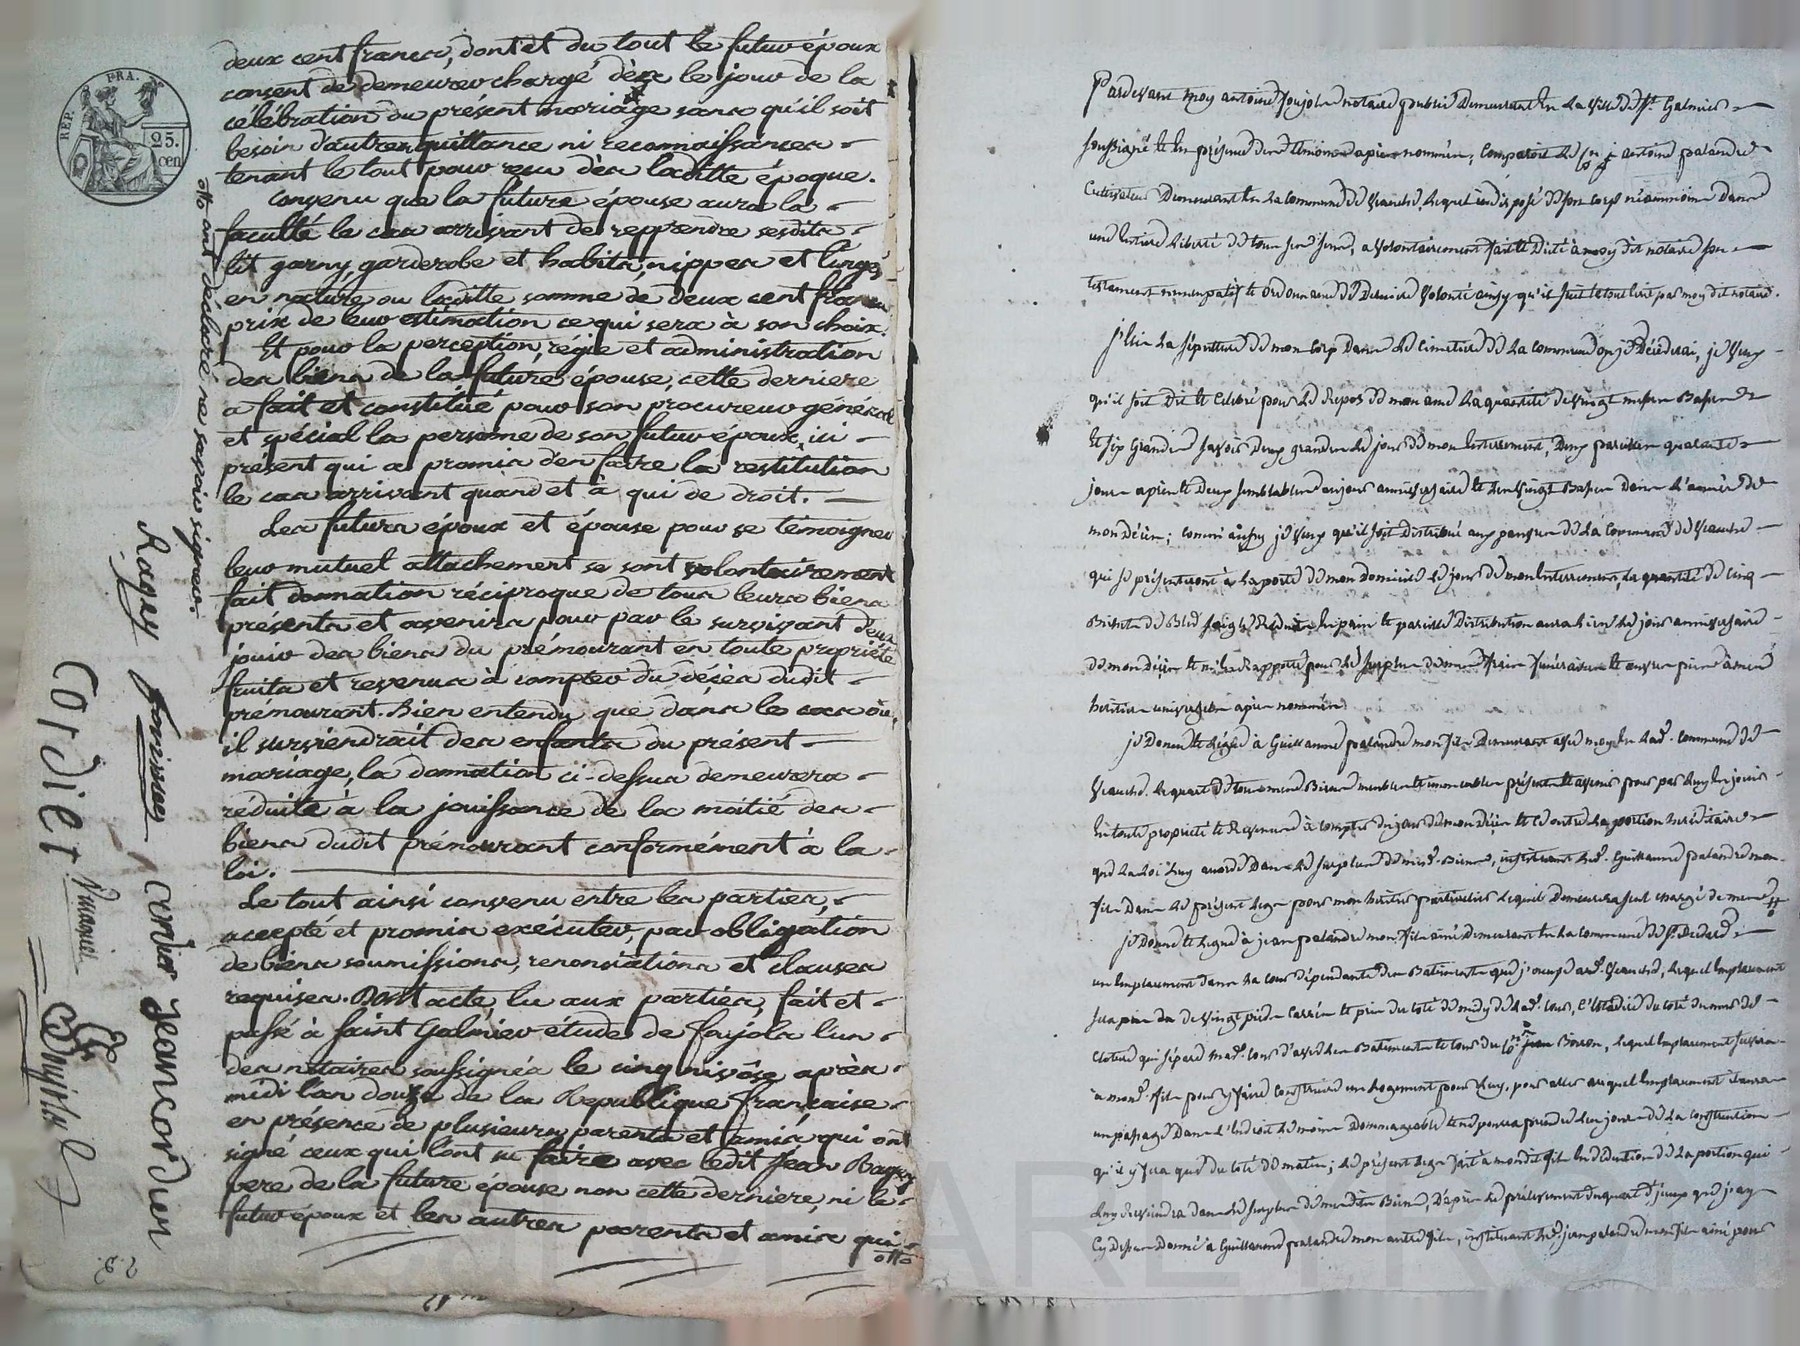 REP. FRA.
25.
cen
deux cent francs, dont et du tout le futur époux
consent de demeurer chargé dès le jour de la
célébration du présent mariage sans qu'il soit
besoin d'autres quittance ni reconnaissances
tenant le tout pour reçu dès laditte époque.
Convenu que la future épouse aura la
faculté le cas arrivant de reprendre sesdits
lit garny, garderobe et habits, nippes et linges
en nature ou laditte somme de deux cent francs
prix de leur estimation ce qui sera à son choix.
Et pour la perception, régie et administration
des biens de la future épouse, cette derniere
a fait et constitué pour son procureur général
et spécial la personne de son futur époux, ici
présent qui a promis d'en faire la restitution
le cas arrivant quand et à qui de droit.
Les futurs époux et épouse pour se témoigner
leur mutuel attachement se sont volontairement
fait donnation réciproque de tous leurs biens
présents et avenirs pour par le survivant d'eux
jouir des biens du prémourant en toute propriété
fruits et revenus à compter du décès dudit
prémourant. Bien entendu que dans le cas où
il surviendrait des enfants du présent
mariage, la donnation ci-dessus demeurera
réduite à la jouissance de la moitié des
biens dudit prémourant conformément à la
loi.
Le tout ainsi convenu entre les parties,
accepté et promis exécuter, par obligation
de biens soumissions, renonsiations et clauses
requises. Dont acte, lu aux parties, fait et
passé à Saint Galmier étude de Foujols l'un
des notaires soussignés le cinq nivôse après
midi l'an douze de la République française
en présence de plusieurs parents et amis qui ont
signé ceux qui l'ont su faire avec ledit Jean Ragey
pere de la future épouse non cette derniere, ni le
futur époux et les autres parents et amis qui
otto
otto ont déclaré ne savoir signer.
Ragey
cordier jean cordier
Cordier
Pardevant moy antoine foujols notaire public demeurant en la ville de St. Galmier
soussigné et en présence des témoins apres nommés, Comparoit le antoine palandre
Cultivateur Demeurant en la commune de Veauche, lequel indisposé de son corp néammoins dans
une entiere liberté de tous ses sens, a volontairement fait et dicté à moy dit notaire son
testament nuncupatif et ordonnance de derniere volonté ainsy qu'il suit le tout écrit par moy dit notaire.
j'élis la sépulture de mon corp dans le cimetiere de la commune ou je décéderai, je veux
qu'il soit dit et célébré pour le repos de mon ame la quantité de vingt messes basses
et six grandes savoir deux grandes le jour de mon enterrement, deux pareilles quarante
jours après et deux semblables au jour anniversaire et les vingt basses dans l'année de
mon décès; comm'aussy je veux qu'il soit distribué aux pauvres de la commune de Veauche
qui se présenteront à la porte de mon domicile le jour de mon enterrement, la quantité de cinq
bichets de bled seigle réduits en pain et pareille distribution aura lieu le jour anniversaire
de mon décès et m'en rapporte pour le surplus de mes fraix funéraires et œuvres pies à mes
héritiers universels apres nommés
je donne et legue à Guillaume palandre mon fils demeurant avec moy en lad. commune de
Veauche, le quart de tous mes biens meubles et immeubles présents et avenir pour par luy en jouir
en toute propriété et revenus à compter du jour de mon décès et ce outre la portion héréditaire
que la loi luy accorde dans le surplus de mesd. biens, instituant led. Guillaume palandre mon
fils dans le présent legs pour mon héritier particulier lequel demeurera seul chargé de
je donne et legue à jean palandre mon fils ainé demeurant en la commune de St.
un emplacement dans la cour dépendante des batiments que j'occupe aud. Veauche, lequel emplacement
sera pris de vingt pieds carrés et pris du coté de midy de lad. cour, du coté du mur de
cloture qui sépare mad. cour d'avec les batiments et cour du jean, lequel emplacement servira
à mond. fils pour y faire construire un logement pour luy, pour aller auquel emplacement il aura
un passage dans l'endroit le moins dommageable et ne pourra prendre les jours de la construction
qu'il y fera que du coté de matin; le présent legs fait à mondit fils en déduction de la portion qui
luy reviendra dans le surplus de mesdits biens, d'après le prélevement du quart d'iceux que j'ay
cy dessus donné à Guillaume palandre mon autre fils, instituant led. jean palandre mon fils ainé pour